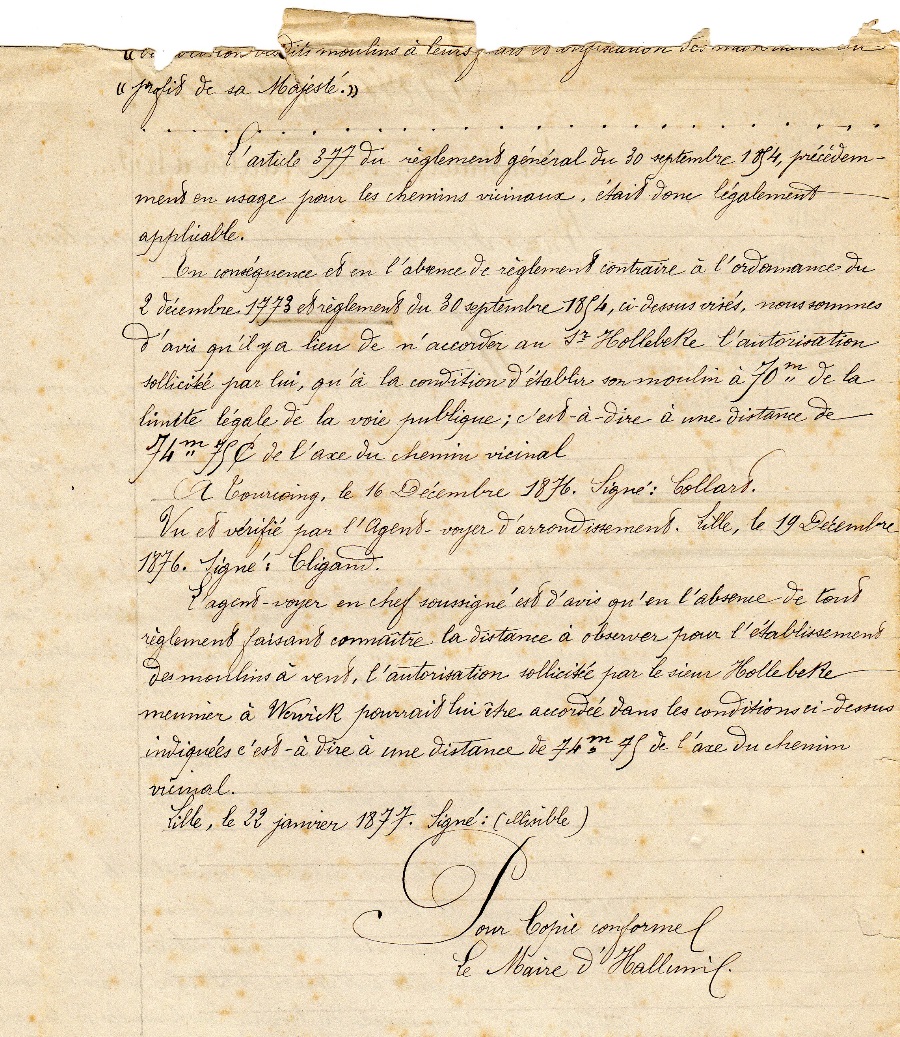 moulins à leurs
« profit de sa Majesté. »
. . . . . . . . . . . . . . . . . . . . . . . .
L'article 377 du règlement général du 30 septembre 1854, précédem-
ment en usage pour les chemins vicinaux, était donc légalement
applicable.
En conséquence et en l'absence de règlement contraire à l'ordonnance du
2 décembre 1773 et règlement du 30 septembre 1854, ci-dessus visés, nous sommes
d'avis qu'il y a lieu de n'accorder au Sr Hollebeke l'autorisation
sollicitée par lui, qu'à la condition d'établir son moulin à 70m de la
limite légale de la voie publique ; c'est-à-dire à une distance de
74m 75c de l'axe du chemin vicinal
A Tourcoing, le 16 Décembre 1876. Signé : Collart.
Vu et vérifié par l'Agent-voyer d'arrondissement. Lille, le 19 Décembre
1876. Signé : Cligand.
L'agent-voyer en chef soussigné est d'avis qu'en l'absence de tout
règlement faisant connaître la distance à observer pour l'établissement
des moulins à vent, l'autorisation sollicitée par le sieur Hollebeke
meunier à Werwick pourrait lui être accordée dans les conditions ci-dessus
indiquées c'est-à-dire à une distance de 74m 75 de l'axe du chemin
vicinal.
Lille, le 22 janvier 1877. Signé : (illisible)
Pour Copie conforme
Le Maire d'Halluin.